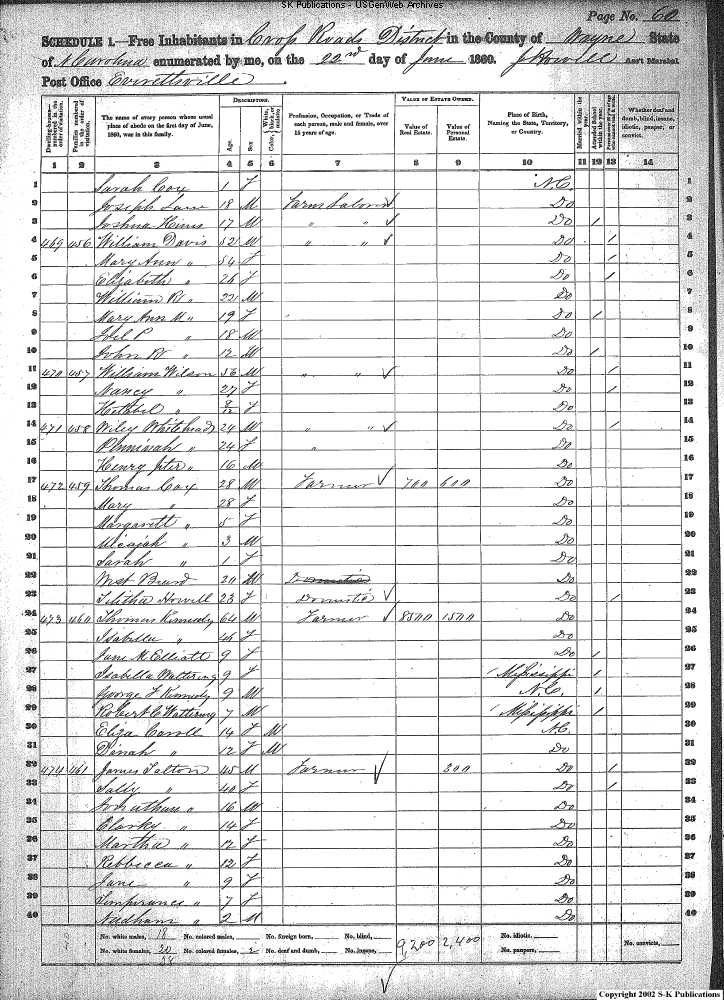 SK Publications - USGenWeb Archives
Page No. 60
SCHEDULE 1.—Free Inhabitants in Cross Roads District in the County of Wayne State
of N Carolina enumerated by me, on the 22nd day of June 1860. Ass't Marshal
Post Office Everettsville
Dwelling-houses numbered in the order of visitation.
Families numbered in the order of visitation.
The name of every person whose usual place of abode on the first day of June, 1860, was in this family.
DESCRIPTION.
Age.
Sex.
Color, {White, black, or mulatto.
Profession, Occupation, or Trade of each person, male and female, over 15 years of age.
VALUE OF ESTATE OWNED.
Value of Real Estate.
Value of Personal Estate.
Place of Birth, Naming the State, Territory, or Country.
Married within the year.
Attended School within the year.
Whether deaf and dumb, blind, insane, idiotic, pauper, or convict.
1 2 3 4 5 6 7 8 9 10 11 12 13 14
1 Sarah Cox 1 F N.C. 1
2 Joseph Lane 18 M Farm Laborer ✓ Do 2
3 Joshua Hines 17 M " " ✓ Do / 3
4 469 456 William Davis 52 M " " ✓ Do / 4
5 Mary Ann " 54 F Do / 5
6 Elizabeth " 26 F Do / 6
7 William R " 22 M Do 7
8 Mary Ann M " 19 F Do / 8
9 Joel P " 18 M Do 9
10 John W " 12 M Do / 10
11 470 457 William Wilson 56 M " " ✓ Do / 11
12 Nancy " 27 F Do / 12
13 " 8/12 F Do 13
14 471 458 Wiley Whitehead 24 M " " ✓ Do / 14
15 Penninah " 24 F " Do 15
16 Henry " 16 M Do 16
17 472 459 Thomas Cox 28 M Farmer ✓ 700 600 Do 17
18 Mary " 28 F Do 18
19 Margarett " 5 F Do 19
20 Micajah " 3 M Do 20
21 Sarah " 1 F Do 21
22 West Beard 20 M Domestic Do 22
23 Tilitha Howell 23 F Domestic ✓ Do / 23
24 473 460 Thomas Kennedy 64 M Farmer ✓ 8500 1500 Do 24
25 Isabella " 46 F Do 25
26 Jane M Elliott 9 F Do / 26
27 Isabella Wattering 9 F Mississippi / 27
28 George F Kennedy 9 M N.C. / 28
29 Robert C Wattering 7 M Mississippi / 29
30 Eliza Carroll 14 F M N.C. 30
31 Dinah " 12 F M Do 31
32 474 461 James Talton 45 M Farmer ✓ 300 Do / 32
33 Sally " 40 F Do / 33
34 Jonathan " 16 M Do 34
35 Clarky " 14 F Do 35
36 Martha " 12 F Do 36
37 Rebbecca " 12 F Do 37
38 Jane " 9 F Do 38
39 Temperance " 7 F Do 39
40 Needham " 2 M Do 40
No. white males, 18 No. colored males, No. foreign born, No. blind, 9,200 2,400 No. idiotic, No. convicts,
No. white females, 20 No. colored females, 2 No. deaf and dumb, No. insane, No. paupers,
38
✓
Copyright 2002 S-K Publications